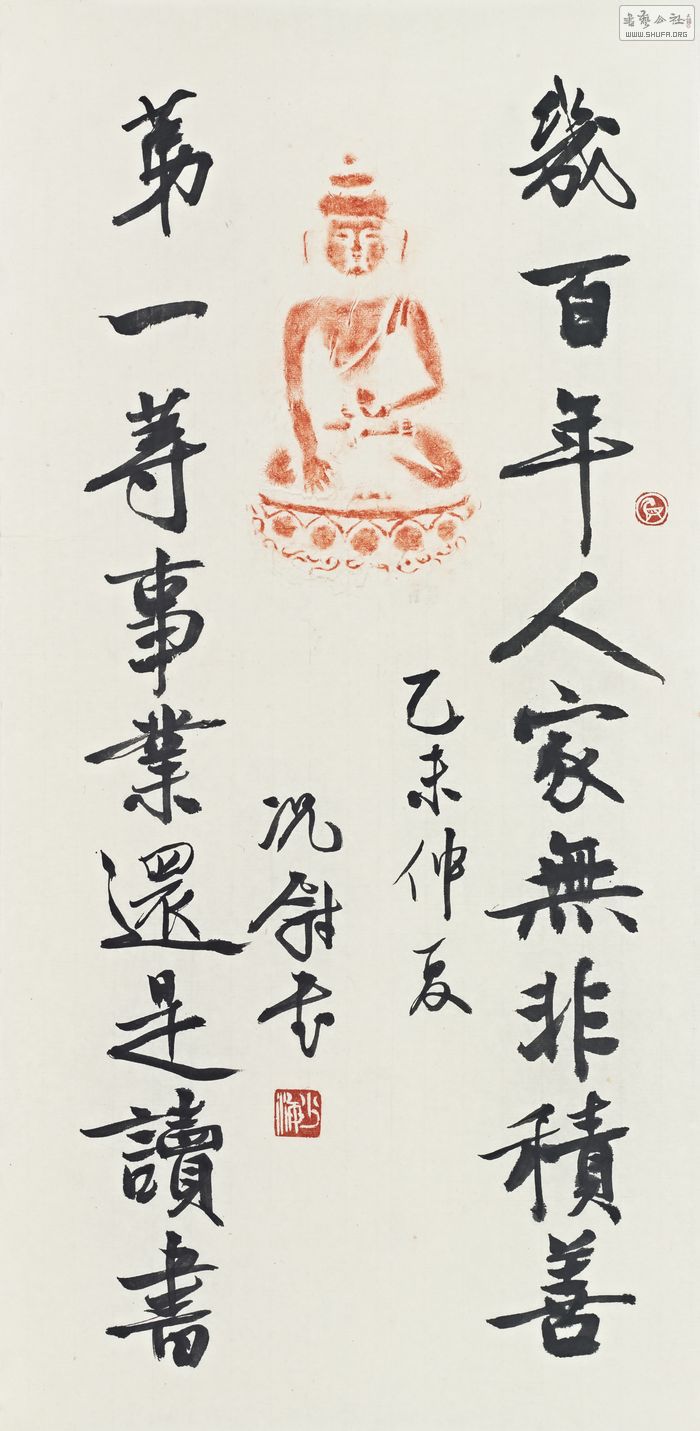 幾百年人家無非積善
苐一等事業還是讀書
乙未仲夏
况尉书
書藝公社
WWW.SHUFA.ORG